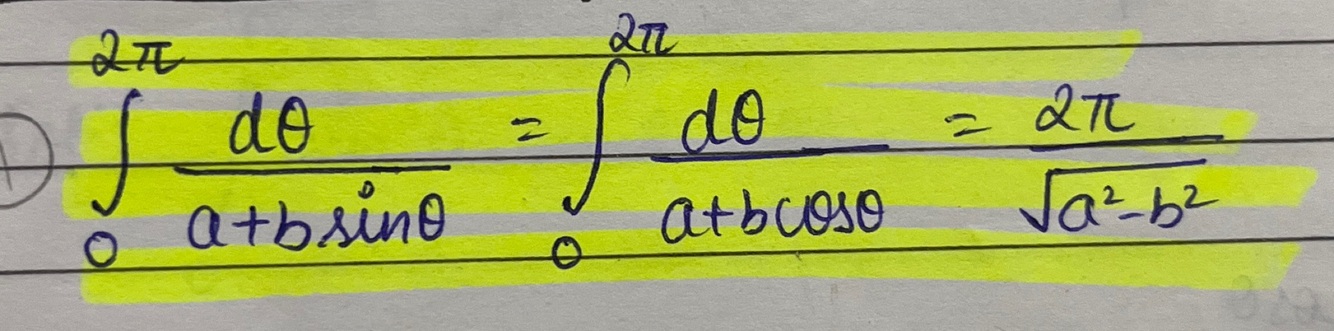 ∫₀^{2π} dθ/(a+b sinθ) = ∫₀^{2π} dθ/(a+b cosθ) = 2π/√(a²-b²)